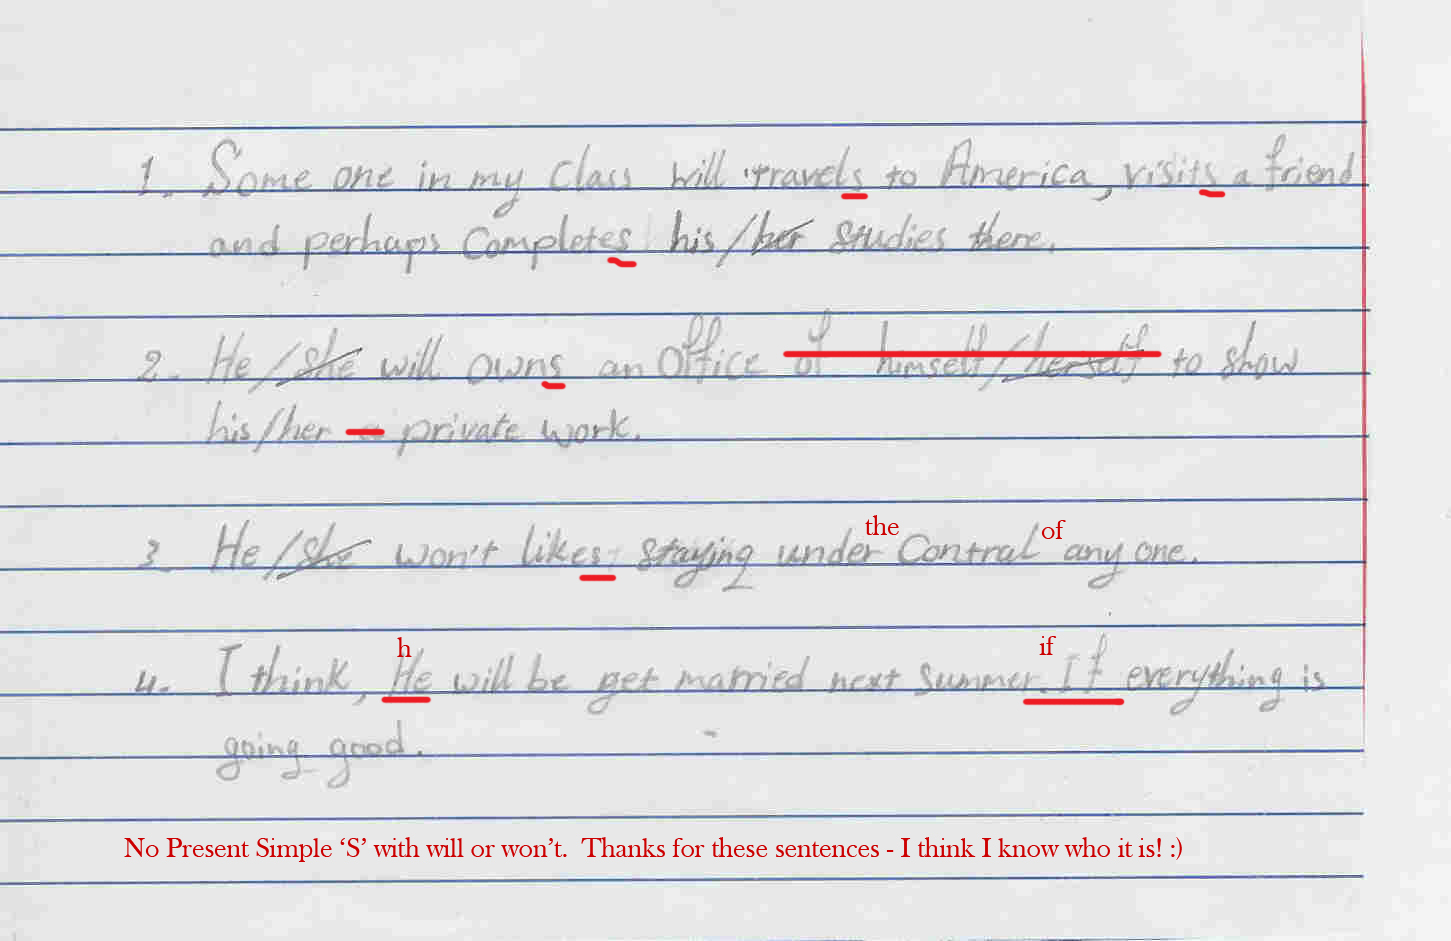 1. Some one in my class will travels to America, visits a friend
and perhaps completes his/her studies there.
2. He/she will owns an office of himself/herself to show
his/her a private work.
the of
3. He/she won't likes staying under Contral any one.
h if
4. I think, He will be get married next summer. If everything is
going good.
No Present Simple ‘S’ with will or won’t. Thanks for these sentences - I think I know who it is! :)